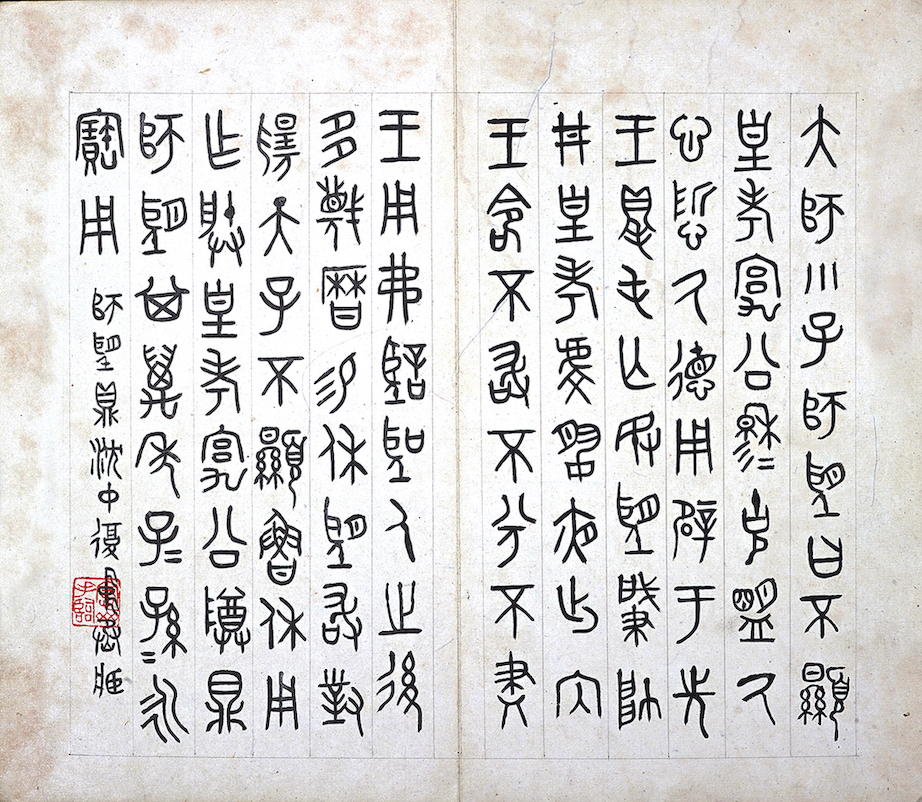 大師小子師望曰不顯
皇考宄公穆=克盟氒
心悊氒德用辟于先
王得屯亡敃望肇帥
井皇考虔夙夜出內
王令不敢不分不妻
王用弗忘聖人之後
多蔑曆易休望敢對
揚天子不顯魯休用
乍朕皇考宄公尊鼎
師望其萬年子=孫=永
寶用 師望鼎沈中復